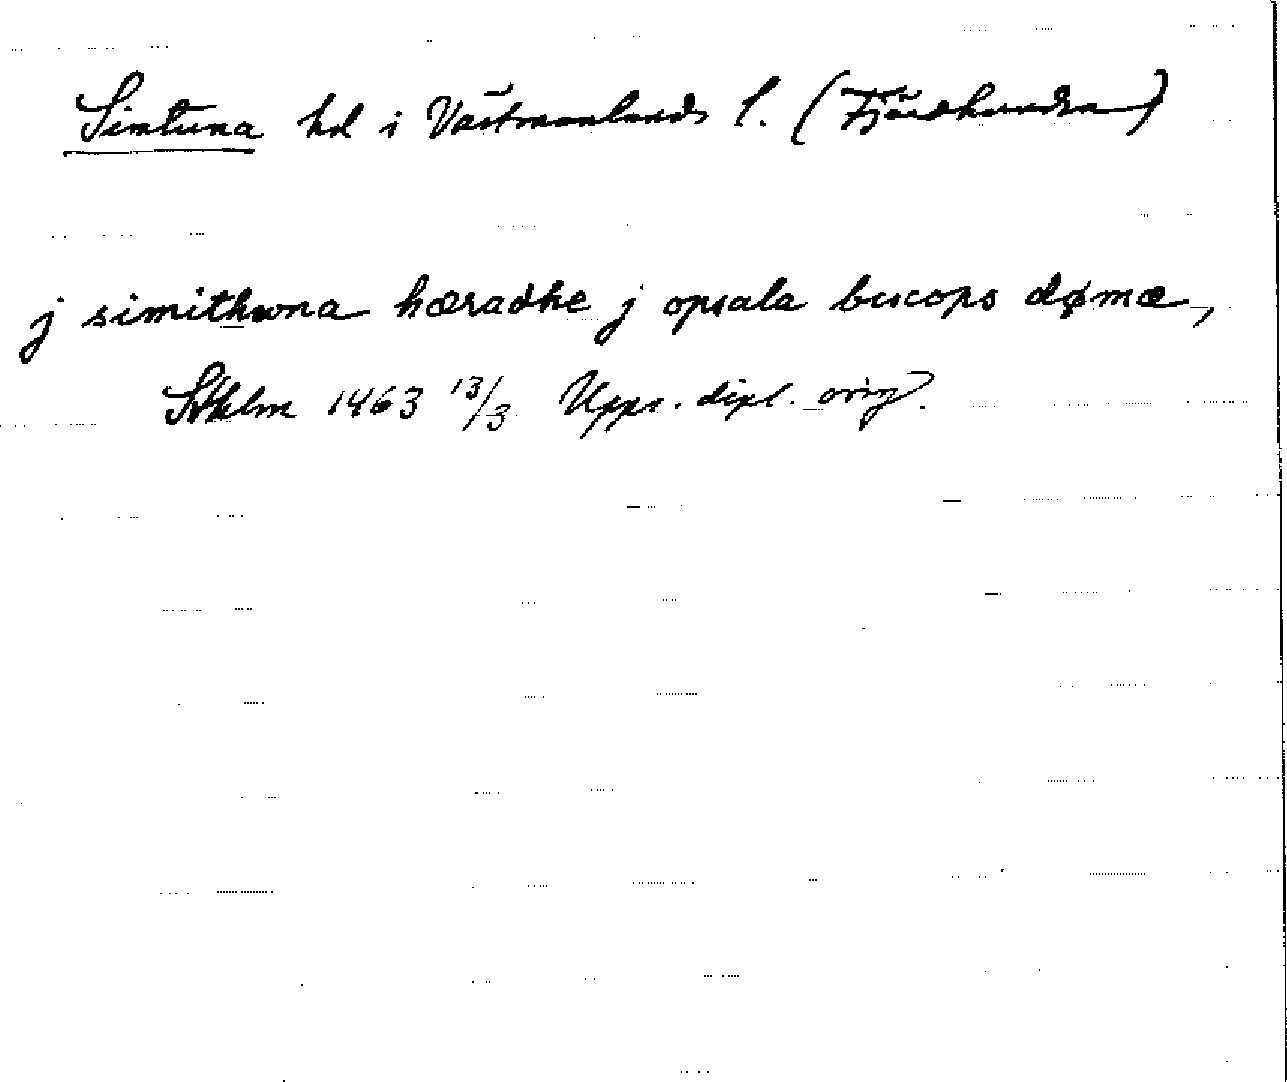 Simtuna hd i Västmanlands l. (Fjärdhundra)
j simithwna hæradhe j opsala biscops dømæ,
Sthlm 1463 13/3 Upps. dipl. orig.